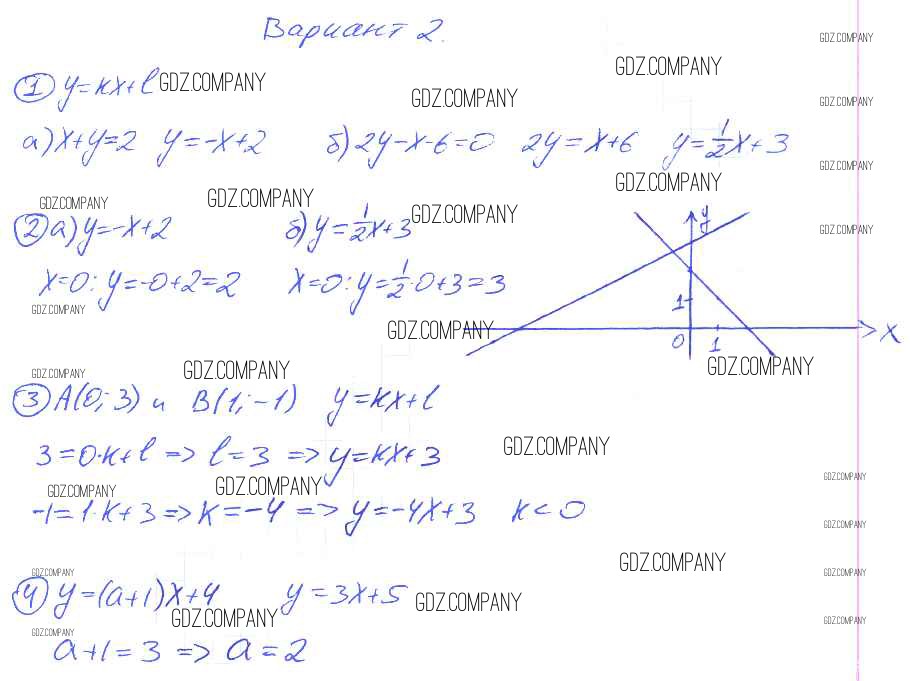 Вариант 2.
GDZ.COMPANY
GDZ.COMPANY
① y=kx+l GDZ.COMPANY
GDZ.COMPANY
GDZ.COMPANY
а) x+y=2 y=-x+2 б) 2y-x-6=0 2y=x+6 y=1/2x+3
GDZ.COMPANY
GDZ.COMPANY
GDZ.COMPANY GDZ.COMPANY
② а) y=-x+2 б) y=1/2x+3 GDZ.COMPANY
y
GDZ.COMPANY
x=0: y=-0+2=2 x=0: y=1/2·0+3=3
1
GDZ.COMPANY
GDZ.COMPANY
0 1 x
GDZ.COMPANY GDZ.COMPANY GDZ.COMPANY
③ A(0; 3) и B(1; -1) y=kx+l
3=0·k+l => l=3 => y=kx+3 GDZ.COMPANY
GDZ.COMPANY GDZ.COMPANY GDZ.COMPANY
-1=1·k+3 => k=-4 => y=-4x+3 k<0
GDZ.COMPANY
GDZ.COMPANY
GDZ.COMPANY GDZ.COMPANY
④ y=(a+1)x+4 y=3x+5 GDZ.COMPANY
GDZ.COMPANY GDZ.COMPANY
GDZ.COMPANY
a+1=3 => a=2